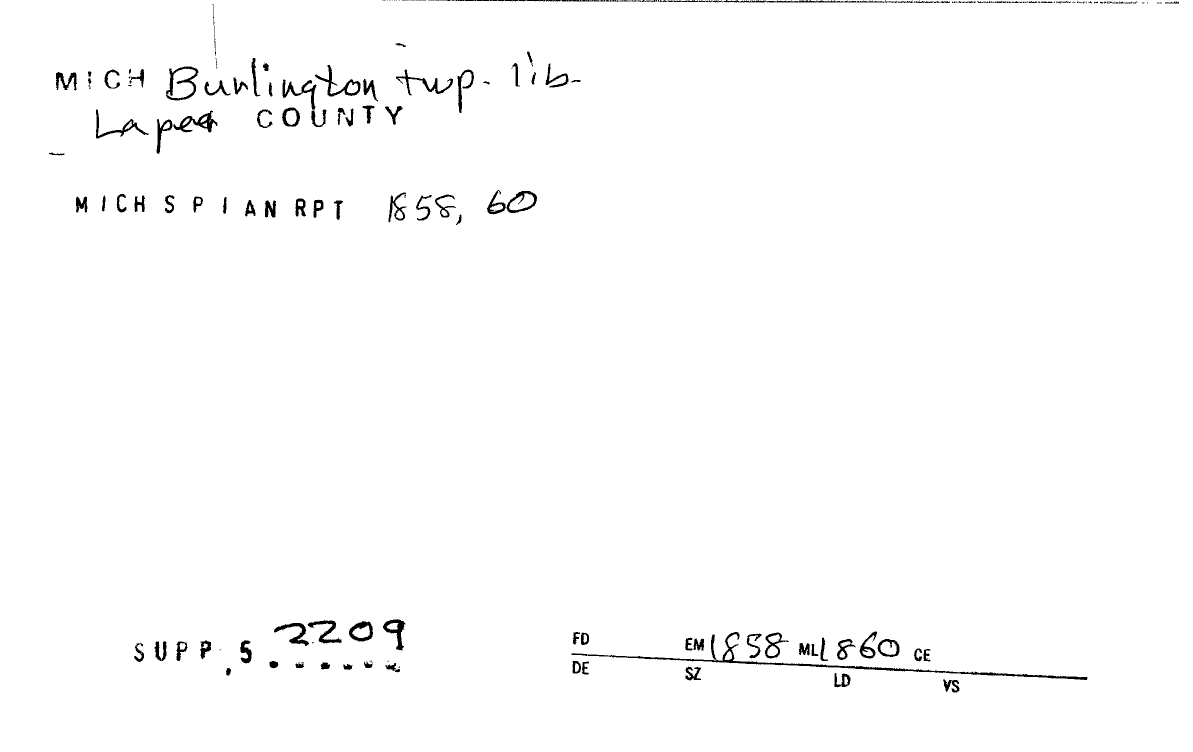 MICH Burlington twp. lib.
Lapeer COUNTY
MICH S P I AN RPT 1858, 60
SUPP. 5 2209
FD EM 1858 ML 1860 CE
DE SZ LD VS